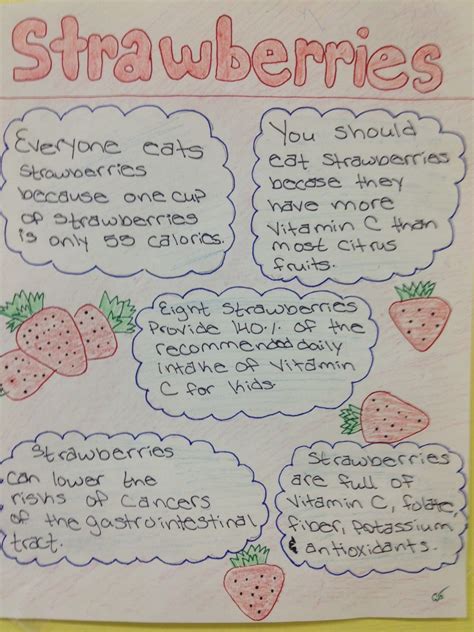 Strawberries
Everyone eats
strawberries
because one cup
of strawberries
is only 55 calories.
You should
eat strawberries
becase they
have more
vitamin C than
most citrus
fruits.
Eight Strawberries
Provide 140% of the
recommended daily
intake of Vitamin
C for kids.
Strawberries
can lower the
risks of cancers
of the gastrointestinal
tract.
Strawberries
are full of
Vitamin C, folate,
fiber, Potassium
& antioxidants.